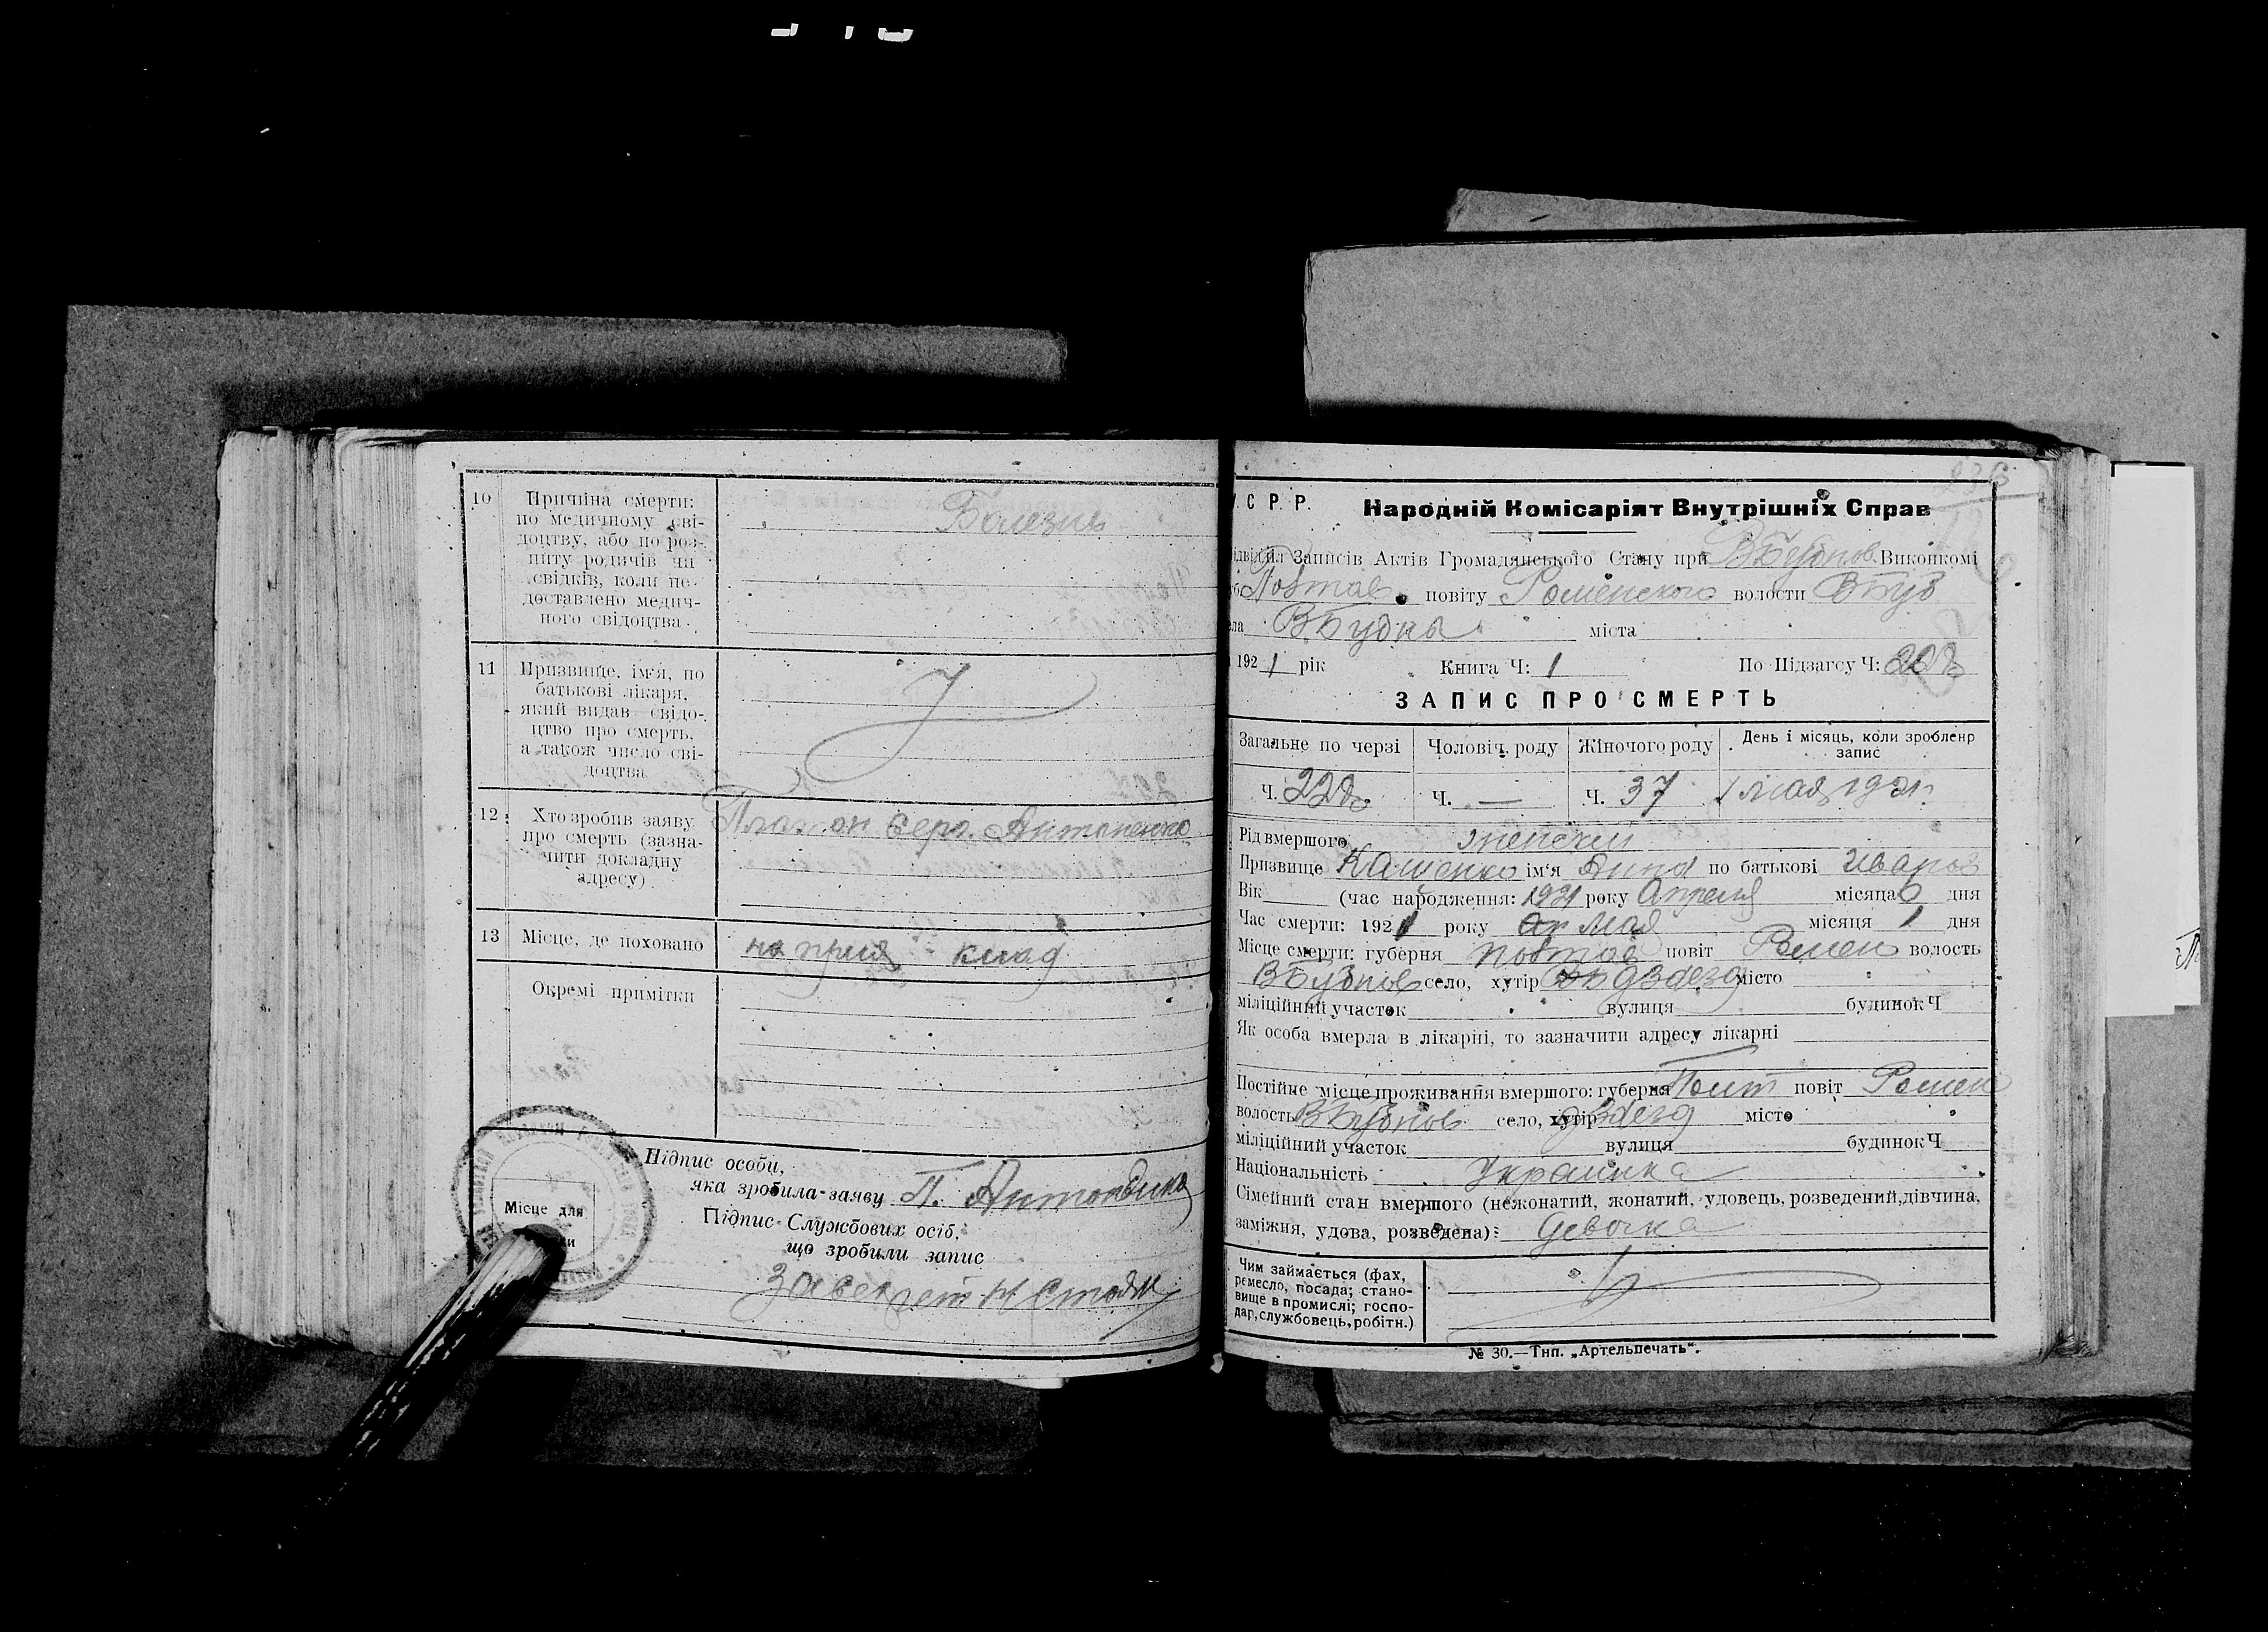 10 Причина смерти:
по медичному сві-
доцтву, або по роз-
питу родичів чи
свідків, коли не
доставлено медич-
ного свідоцтва.
Болезнь
11 Призвище, ім'я, по
батькові лікаря,
який видав свідо-
цтво про смерть,
а також число сві-
доцтва
12 Хто зробив заяву
про смерть (зазна-
чити докладну
адресу)
Платон Антоненко
13 Місце, де поховано
на клад
Окремі примітки
Місце для
Підпис особи,
яка зробила заяву П.
Підпис Службових осіб,
що зробили запис
С. Р. Р. Народній Комісаріят Внутрішніх Справ
Записів Актів Громадянського Стану при ВБубнов Виконкомі
Повтав повіту Роменского волости ВБуб
ВБубны міста
1921 рік Книга Ч: 1 По Підзагсу Ч:
ЗАПИС ПРО СМЕРТЬ
Загальне по черзі Чоловіч. роду Жіночого роду День і місяць, коли зроблено
запис
Ч. Ч. — Ч. 37 1 мая 1921г.
Рід вмершого женский
Призвище Кашенко ім'я Анна по батькові Иванов
Вік (час народження: 1921 року Апреля місяца дня
Час смерти: 1921 року Ап Мая місяця 1 дня
Місце смерти: губерня Повтав повіт Ромен волость
ВБубнов село, хутір місто
міліційний участок вулиця будинок Ч
Як особа вмерла в лікарні, то зазначити адресу лікарні
Постійне місце проживання вмершого: губерня Полт повіт Ромен
волость ВБубнов село, хутір місто
міліційний участок вулиця будинок Ч
Національність Украинка
Сімейний стан вмершого (нежонатий, жонатий, удовець, розведений, дівчина,
заміжня, удова, розведена): девочка
Чим займається (фах,
ремесло, посада; стано-
вище в промислі; госпо-
дар, службовець, робітн.)
№ 30.—Тип. „Артельпечать".